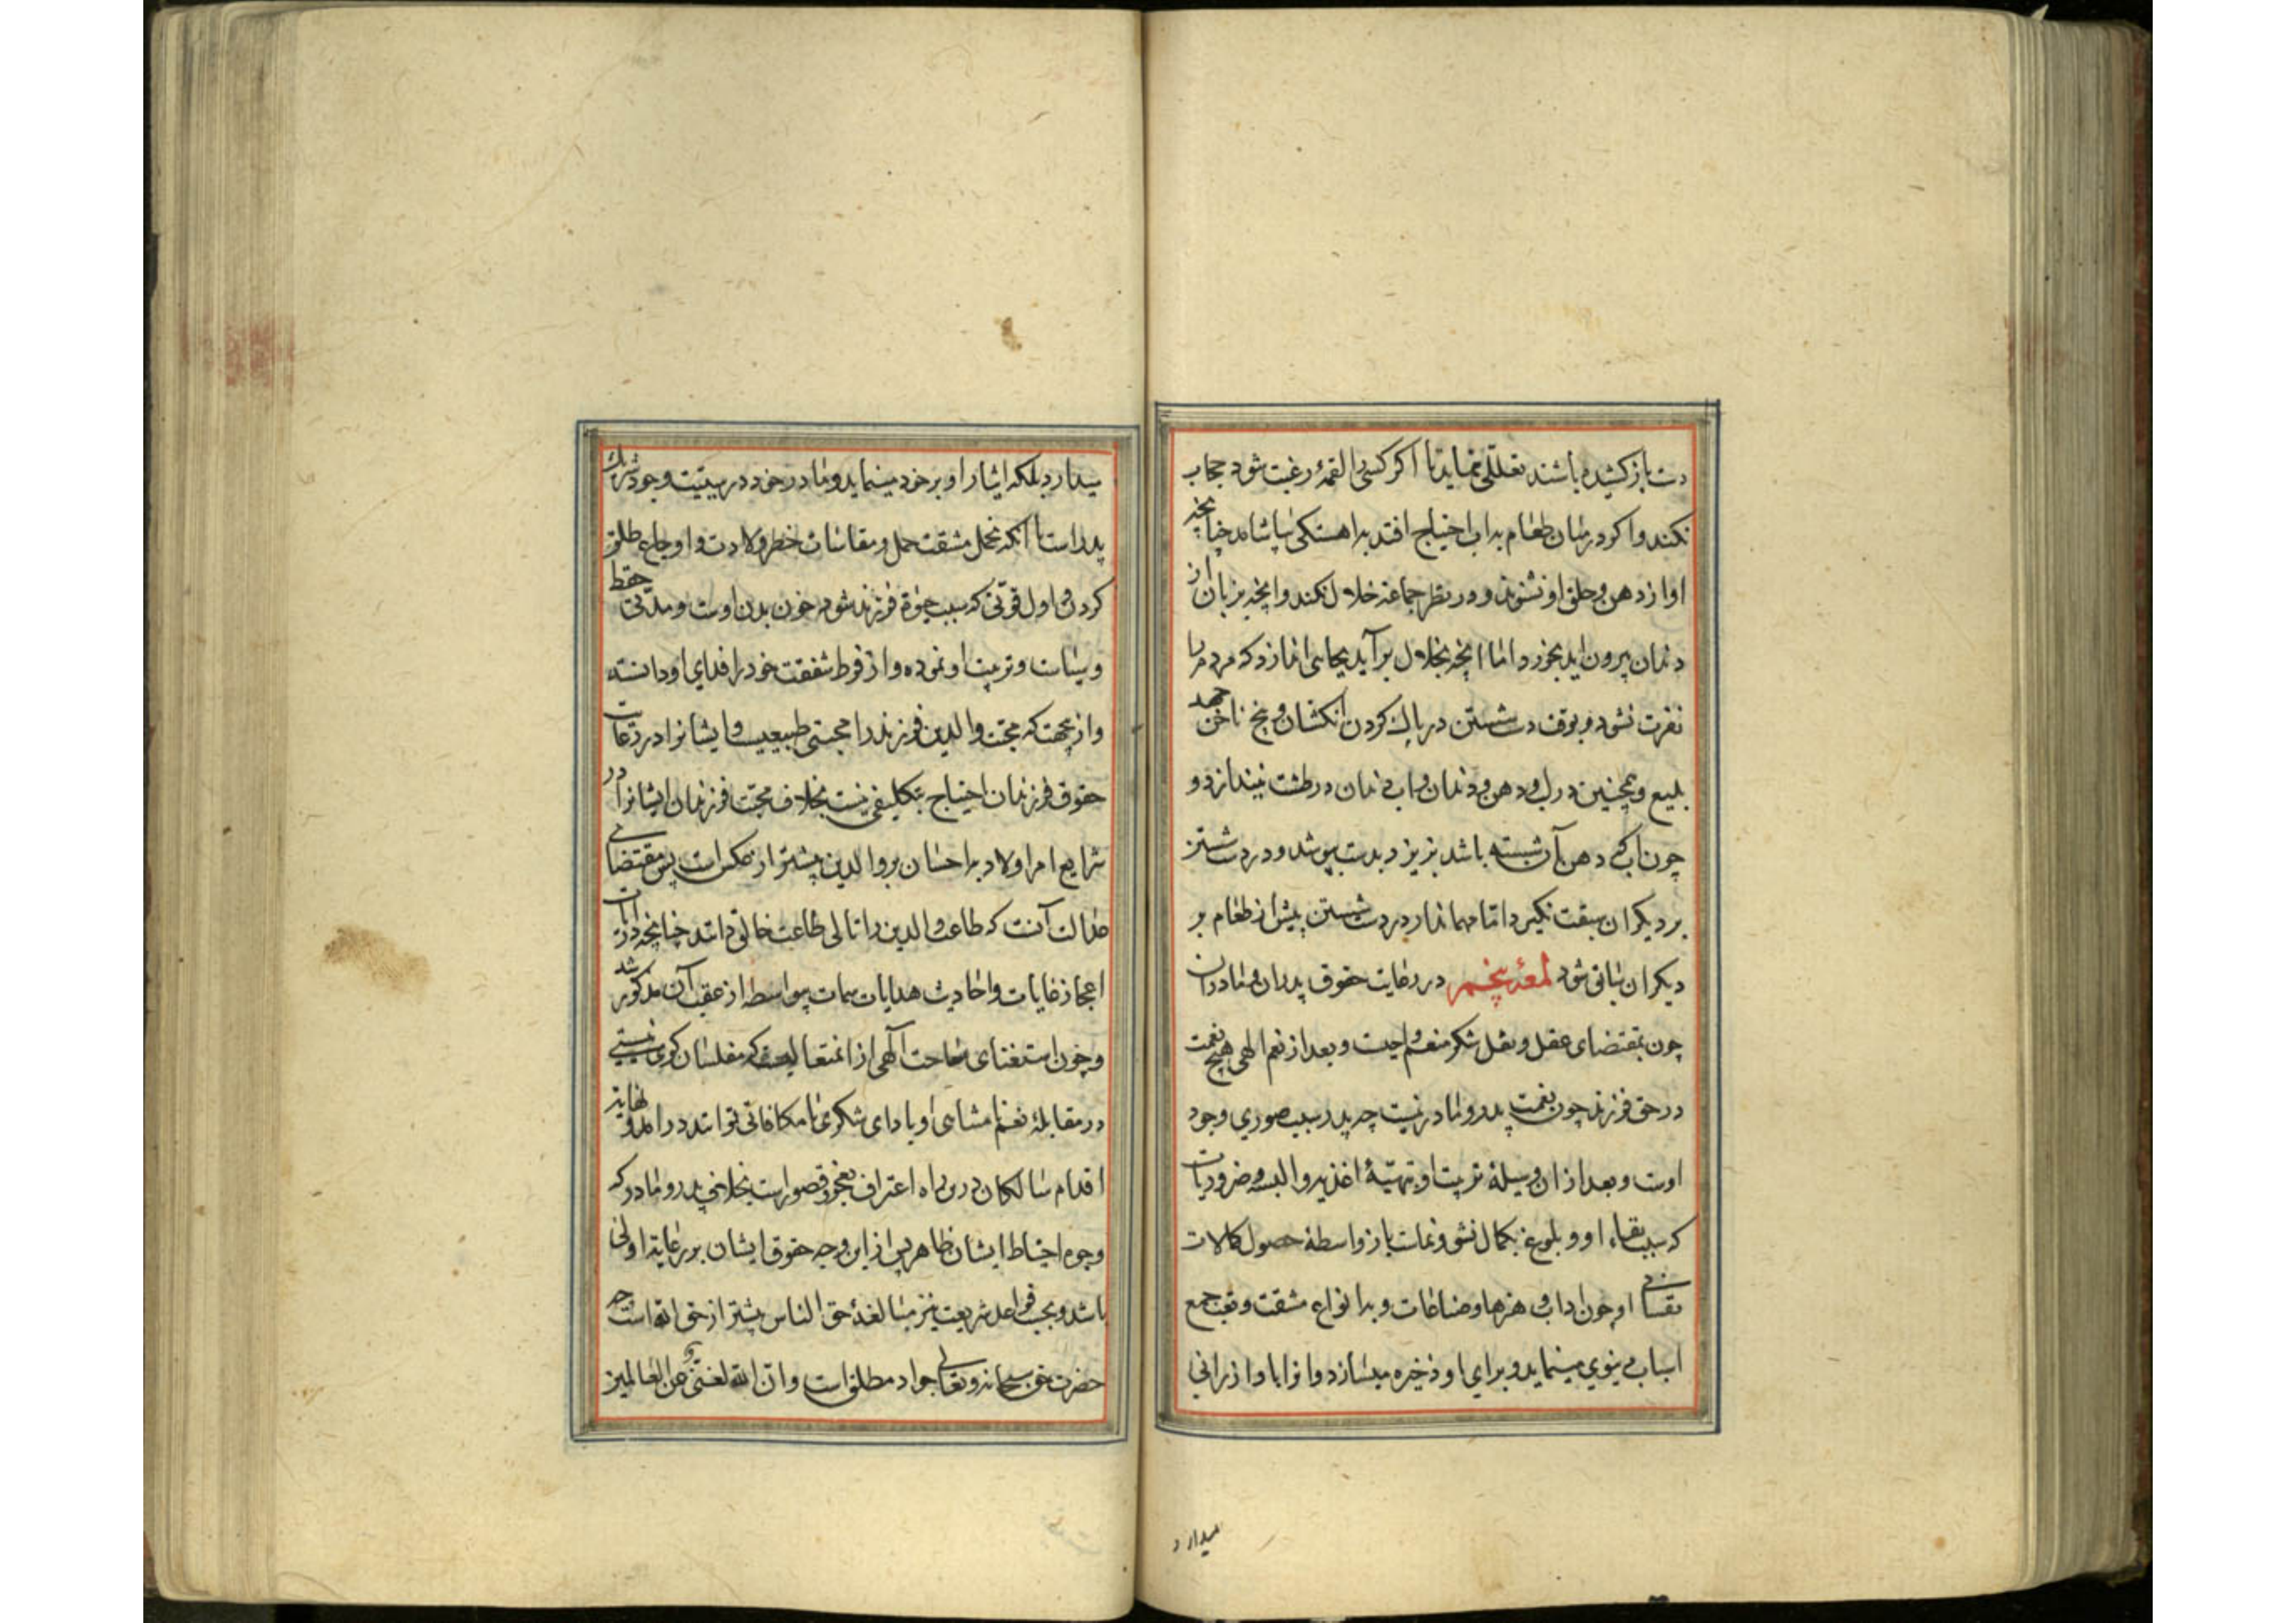 دست باز کشیده باشند تعللی نماید تا اکر کسی را لقمهٔ رغبت شود حجاب
نکند و اکر در میان طعام به اب احتیاج افتد به اهستکی بیاشامد چنانچه
اواز دهن و حلق او نشنوند و در نظر جماعة خلال نکند و انچه بزبان از
دندان بیرون اید بخورد اما انچه بخلال بر آید بجائی اندازد که مردم را
نفرت نشود و بوقت دست شستن در پاك کردن انکشتان و بیخ ناخن جهد
بلیغ و همچنین در لب و دهن و دندان و اب دهان در طشت نیندازد و
چون اب که دهن بآن شسته باشد بریزد بدست بپوشد و در دست شستن
بر دیکران سبقت نکیرد اما مهماندار در دست شستن پیش از طعام بر
دیکران سابق شود لمعهٔ پنجم در رعایت حقوق پدران و مادران
چون بمقتضای عقل و نقل شکر منعم واجبست و بعد از نعم الهی هیچ نعمت
در حق فرزند چون نعمت پدر و مادر نیست چه پدر سبب صوری وجود
اوست و بعد از ان وسیلهٔ تربیت او و تهیّهٔ اغذیه و البسه و ضروریات
که سبب بقاء او و بلوغ بکمال نشو و نماست باز واسطهٔ حصول کمالات
نفسانی او چون اداب و هنرها و صناعات و به انواع مشقت و تعب جمع
اسباب دنیوی مینماید و برای او ذخیره میسازد و انرا با وارزانی
میدارد
میدارد بلکه ایثار او بر خود مینماید و مادر خود در سببیت وجود شریك
پدر است با انکه تحمل مشقت حمل و مقاسات خطر ولادت و اوجاع طلق
کردن و اول قوتی که سبب حیوة فرزند شود خون بدن اوست و مدتی حفظ
و سیاست و تربیت او نموده و از فرط شفقت خود را فدای او دانسته
و از جهت که محبت والدین فرزند را محبتی طبیعیست و ایشانرا در رعایت
حقوق فرزندان احتیاج بتکلیفی نیست بخلاف محبت فرزندان ایشانرا در
شرایع امر اولاد به احسان بر والدین بیشتر از عکس است پس مقتضای
عدالت آنست که طاعت والدین را تالی طاعت خالق دانند چنانچه در ایات
اعجاز غایات و احادیث هدایات سمات بیواسطه از عقب آن مذکور شد
و چون استغنای ساحت آلهی از انمتعالیست که مفلسان کوی نیستی
در مقابلهٔ نعم نامتناهی او با دای شکری یا مکافاتی توانند در امد و نهایت
اقدام سالکان درین راه اعتراف بعجز و قصور است بخلاف پدر و مادر که
وجوه احتیاط ایشان ظاهر پس از این وجه حقوق ایشان برعایت اولی
باشد و بحسب قواعد شریعت نیز مبالغهٔ حق الناس بیشتر از حق الله است چه
حضرت حق سبحانه و تعالی جواد مطلق است و ان الله لغنی عن العالمین